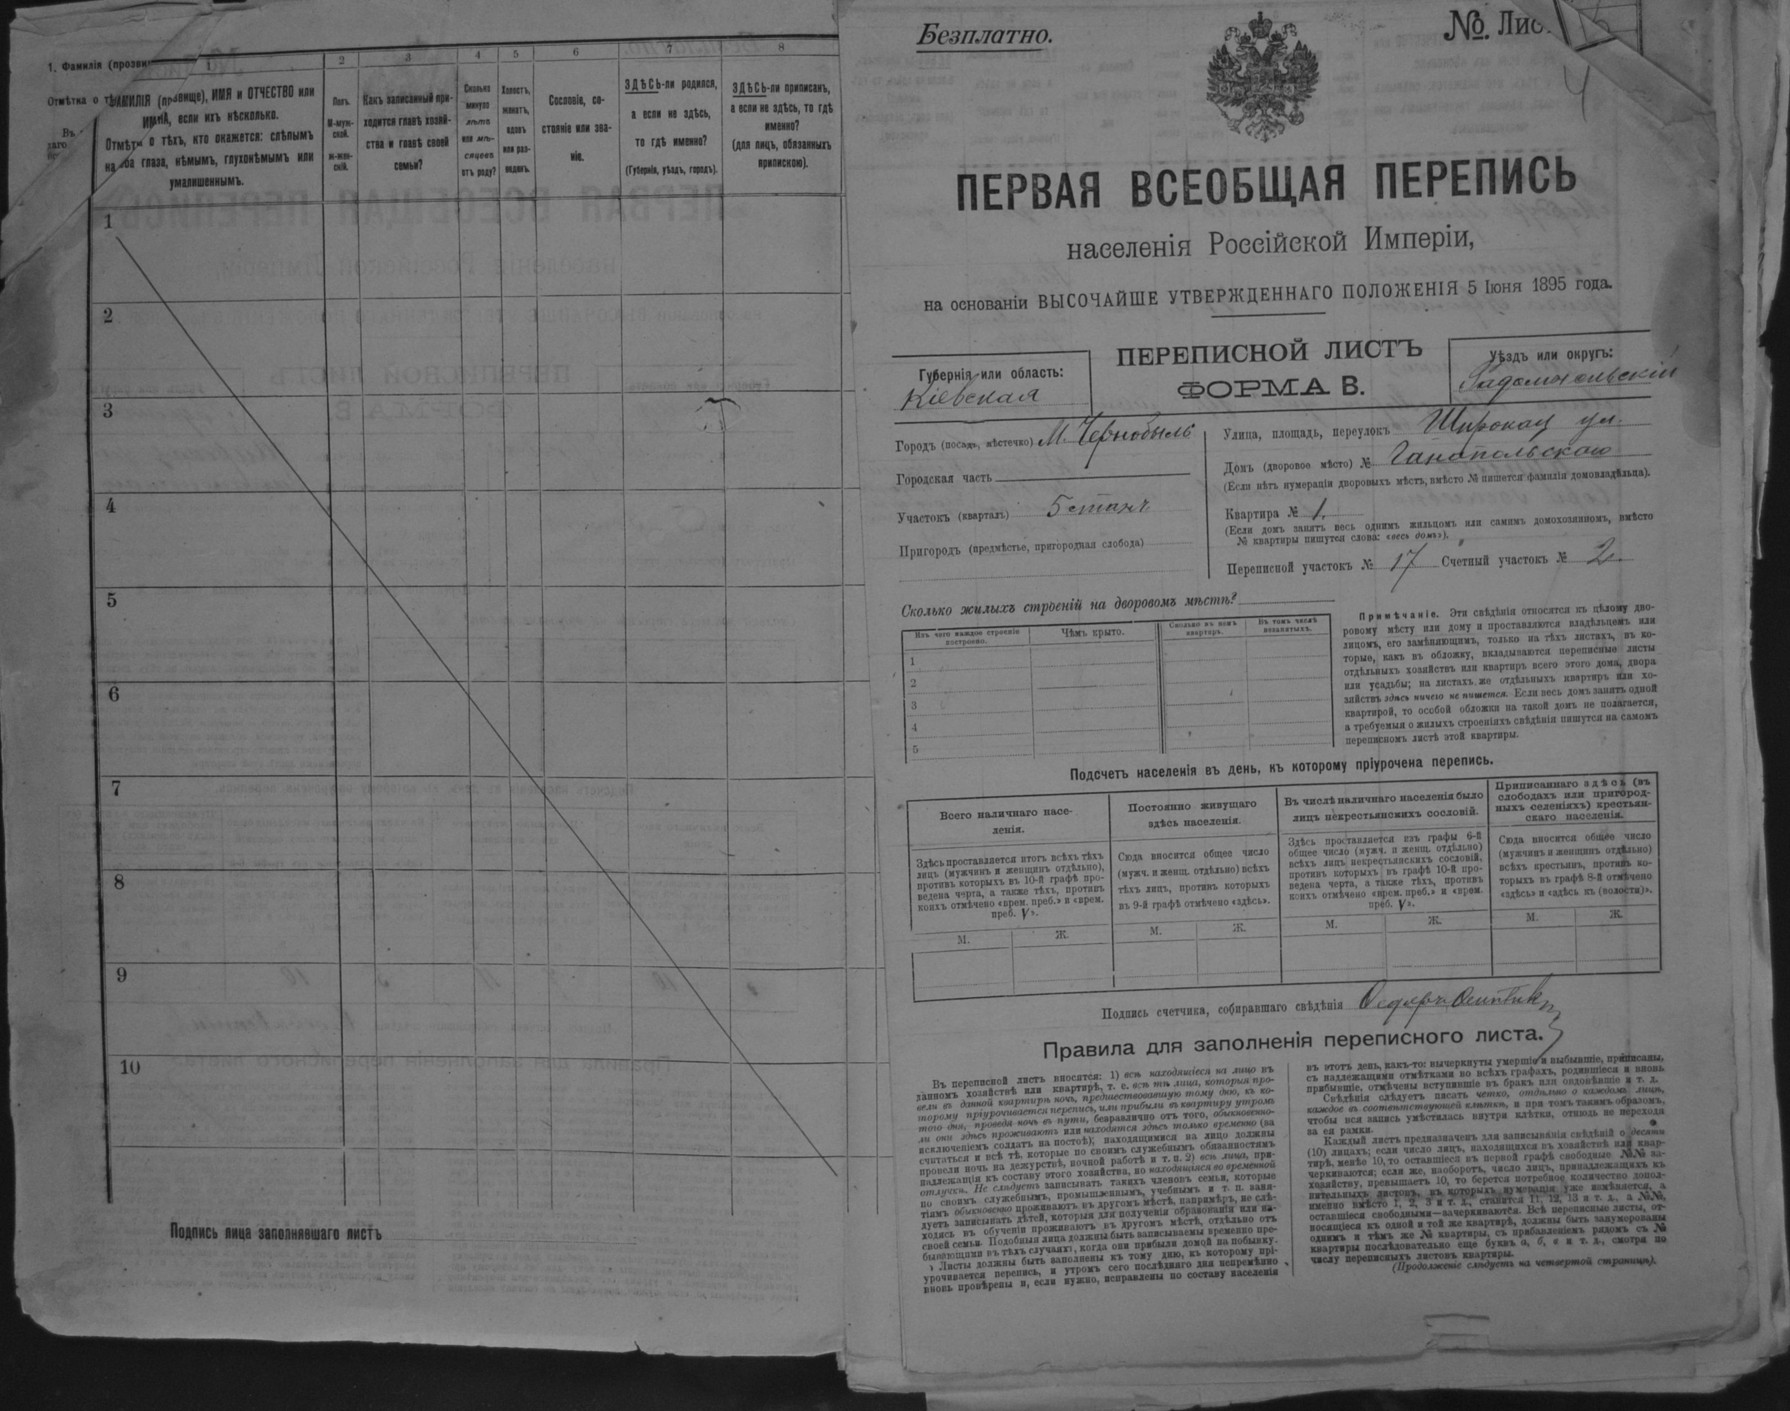 1. Фамилія (прозви
Отмѣтка о т
1 2 3 4 5 6 7 8
ФАМИЛІЯ (прозвище), ИМЯ и ОТЧЕСТВО или
ИМЕНА, если ихъ нѣсколько.
Отмѣтка о тѣхъ, кто окажется: слѣпымъ
на оба глаза, нѣмымъ, глухонѣмымъ или
умалишеннымъ.
Полъ.
М-муж-
ской.
Ж-жен-
скій.
Какъ записанный при-
ходится главѣ хозяй-
ства и главѣ своей
семьи?
Сколько
минуло
лѣтъ
или мѣ-
сяцевъ
отъ роду?
Холостъ,
женатъ,
вдовъ
или раз-
веденъ.
Сословіе, со-
стояніе или зва-
ніе.
ЗДѢСЬ-ли родился,
а если не здѣсь,
то гдѣ именно?
(Губернія, уѣздъ, городъ).
ЗДѢСЬ-ли приписанъ,
а если не здѣсь, то гдѣ
именно?
(для лицъ, обязанныхъ
припискою).
1
2
3
4
5
6
7
8
9
10
Подпись лица заполнявшаго листъ
Безплатно.
№. Лис
ПЕРВАЯ ВСЕОБЩАЯ ПЕРЕПИСЬ
населенія Россійской Имперіи,
на основаніи ВЫСОЧАЙШЕ УТВЕРЖДЕННАГО ПОЛОЖЕНІЯ 5 Іюня 1895 года.
ПЕРЕПИСНОЙ ЛИСТЪ
ФОРМА В.
Губернія или область:
Кіевская
Уѣздъ или округъ:
Радомысльскій
Городъ (посадъ, мѣстечко) М. Чернобыль
Городская часть
Участокъ (кварталъ) 5 станъ
Пригородъ (предмѣстье, пригородная слобода)
Улица, площадь, переулокъ Широкая ул.
Домъ (дворовое мѣсто) № Ганапольскаго
(Если нѣтъ нумераціи дворовыхъ мѣстъ, вмѣсто № пишется фамилія домовладѣльца).
Квартира № 1.
(Если домъ занятъ весь однимъ жильцомъ или самимъ домохозяиномъ, вмѣсто
№ квартиры пишутся слова: «весь домъ»).
Переписной участокъ № 17 Счетный участокъ № 2.
Сколько жилыхъ строеній на дворовомъ мѣстѣ?
Изъ чего каждое строеніе
построено.
Чѣмъ крыто.
Сколько въ немъ
квартиръ.
Въ томъ числѣ
незанятыхъ.
1
2
3
4
5
Примѣчаніе. Эти свѣдѣнія относятся къ цѣлому дво-
ровому мѣсту или дому и проставляются владѣльцемъ или
лицомъ, его замѣняющимъ, только на тѣхъ листахъ, въ ко-
торые, какъ въ обложку, вкладываются переписные листы
отдѣльныхъ хозяйствъ или квартиръ всего этого дома, двора
или усадьбы; на листахъ же отдѣльныхъ квартиръ или хо-
зяйствъ здѣсь ничего не пишется. Если весь домъ занятъ одной
квартирой, то особой обложки на такой домъ не полагается,
а требуемыя о жилыхъ строеніяхъ свѣдѣнія пишутся на самомъ
переписномъ листѣ этой квартиры.
Подсчетъ населенія въ день, къ которому пріурочена перепись.
Всего наличнаго насе-
ленія.
Здѣсь проставляется итогъ всѣхъ тѣхъ
лицъ (мужчинъ и женщинъ отдѣльно),
противъ которыхъ въ 10-й графѣ про-
ведена черта, а также тѣхъ, противъ
коихъ отмѣчено «врем. преб.» и «врем.
преб. V».
Постоянно живущаго
здѣсь населенія.
Сюда вносится общее число
(мужч. и женщ. отдѣльно) всѣхъ
тѣхъ лицъ, противъ которыхъ
въ 9-й графѣ отмѣчено «здѣсь».
Въ числѣ наличнаго населенія было
лицъ некрестьянскихъ сословій.
Здѣсь проставляется изъ графы 6-й
общее число (мужч. и женщ. отдѣльно)
всѣхъ лицъ некрестьянскихъ сословій,
противъ которыхъ въ графѣ 10-й про-
ведена черта, а также тѣхъ, противъ
коихъ отмѣчено «врем. преб.» и «врем.
преб. V».
Приписаннаго здѣсь (въ
слободахъ или пригород-
ныхъ селеніяхъ) крестьян-
скаго населенія.
Сюда вносится общее число
(мужчинъ и женщинъ отдѣльно)
всѣхъ крестьянъ, противъ ко-
торыхъ въ графѣ 8-й отмѣчено
«здѣсь» и «здѣсь въ (волости)».
М. Ж. М. Ж. М. Ж. М. Ж.
Подпись счетчика, собиравшаго свѣдѣнія Ѳедоръ
Правила для заполненія переписного листа.
Въ переписной листъ вносятся: 1) всѣ находящіеся на лицо въ
данномъ хозяйствѣ или квартирѣ, т. е. всѣ тѣ лица, которыя про-
вели въ данной квартирѣ ночь, предшествовавшую тому дню, къ ко-
торому пріурочивается перепись, или прибыли въ квартиру утромъ
того дня, проведя ночь въ пути, безразлично отъ того, обыкновенно-
ли они здѣсь проживаютъ или находятся здѣсь только временно (за
исключеніемъ солдатъ на постоѣ); находящимися на лицо должны
считаться и всѣ тѣ, которые по своимъ служебнымъ обязанностямъ
провели ночь на дежурствѣ, ночной работѣ и т. п. 2) всѣ лица, при-
надлежащія къ составу этого хозяйства, но находящіяся во временной
отлучкѣ. Не слѣдуетъ записывать такихъ членовъ семьи, которые
по своимъ служебнымъ, промышленнымъ, учебнымъ и т. п. заня-
тіямъ обыкновенно проживаютъ въ другомъ мѣстѣ, напримѣръ, не слѣ-
дуетъ записывать дѣтей, которыя для полученія образованія или на-
ходясь въ обученіи проживаютъ въ другомъ мѣстѣ, отдѣльно отъ
своей семьи. Подобныя лица должны быть записываемы временно пре-
бывающими въ тѣхъ случаяхъ, когда они прибыли домой на побывку.
Листы должны быть заполнены къ тому дню, къ которому прі-
урочивается перепись, и утромъ сего послѣдняго дня непремѣнно
вновь провѣрены и, если нужно, исправлены по составу населенія
въ этотъ день, какъ-то: вычеркнуты умершіе и выбывшіе, приписаны,
съ надлежащими отмѣтками во всѣхъ графахъ, родившіеся и вновь
прибывшіе, отмѣчены вступившіе въ бракъ или овдовѣвшіе и т. д.
Свѣдѣнія слѣдуетъ писать четко, отдѣльно о каждомъ лицѣ,
каждое въ соотвѣтствующей клѣткѣ, и при томъ такимъ образомъ,
чтобы вся запись умѣстилась внутри клѣтки, отнюдь не переходя
за ея рамки.
Каждый листъ предназначенъ для записыванія свѣдѣній о десяти
(10) лицахъ; если число лицъ, находящихся въ хозяйствѣ или квар-
тирѣ, менѣе 10, то оставшіеся въ первой графѣ свободные №№ за-
черкиваются; если же, наоборотъ, число лицъ, принадлежащихъ къ
хозяйству, превышаетъ 10, то берется потребное количество допол-
нительныхъ листовъ, въ которыхъ нумерація уже измѣняется, а
именно вмѣсто 1, 2, 3 и т. д., ставится 11, 12, 13 и т. д., а №№,
оставшіеся свободными—зачеркиваются. Всѣ переписные листы, от-
носящіеся къ одной и той же квартирѣ, должны быть занумерованы
однимъ и тѣмъ же № квартиры, съ прибавленіемъ рядомъ съ №
квартиры послѣдовательно еще буквъ а, б, в и т. д., смотря по
числу переписныхъ листовъ квартиры.
(Продолженіе слѣдуетъ на четвертой страницѣ).